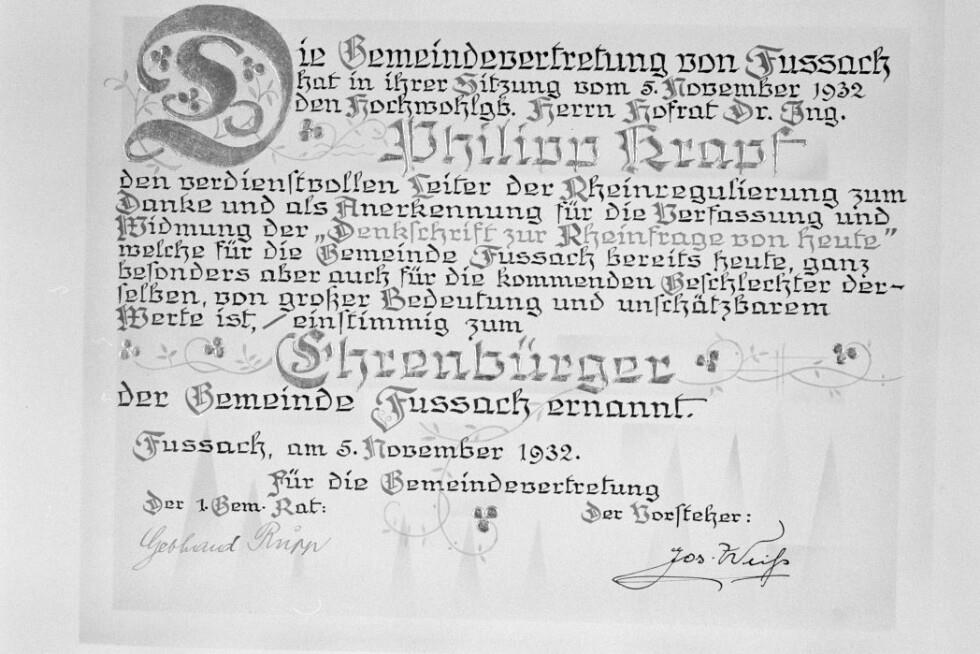 Die Gemeindevertretung von Fussach
hat in ihrer Sitzung vom 5. November 1932
den Hochwohlgb. Herrn Hofrat Dr. Ing.
Philipp Krapf
den verdienstvollen Leiter der Rheinregulierung zum
Danke und als Anerkennung für die Verfassung und
Widmung der „Denkschrift zur Rheinfrage von heute"
welche für die Gemeinde Fussach bereits heute, ganz
besonders aber auch für die kommenden Geschlechter der-
selben, von großer Bedeutung und unschätzbarem
Werte ist, einstimmig zum
Ehrenbürger
der Gemeinde Fussach ernannt.
Fussach, am 5. November 1932.
Für die Gemeindevertretung
Der 1. Gem. Rat:
Der Vorsteher:
Gebhard Rupp
Jos. Weiß